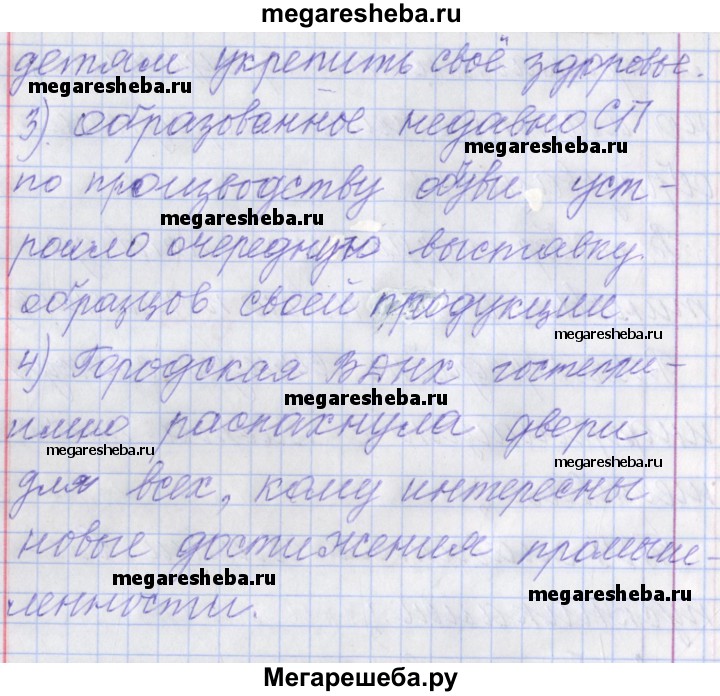 megaresheba.ru
детям укрепить своё здоровье.
megaresheba.ru
3) образованное недавно СП
megaresheba.ru
по производству обуви уст-
megaresheba.ru
роило очередную выставку
образцов своей продукции
megaresheba.ru
4) Городская ВДНХ гостепри-
megaresheba.ru
имно распахнула двери
megaresheba.ru
megaresheba.ru
для всех, кому интересны
новые достижения промыш-
megaresheba.ru
megaresheba.ru
ленности.
Мегарешеба.ру